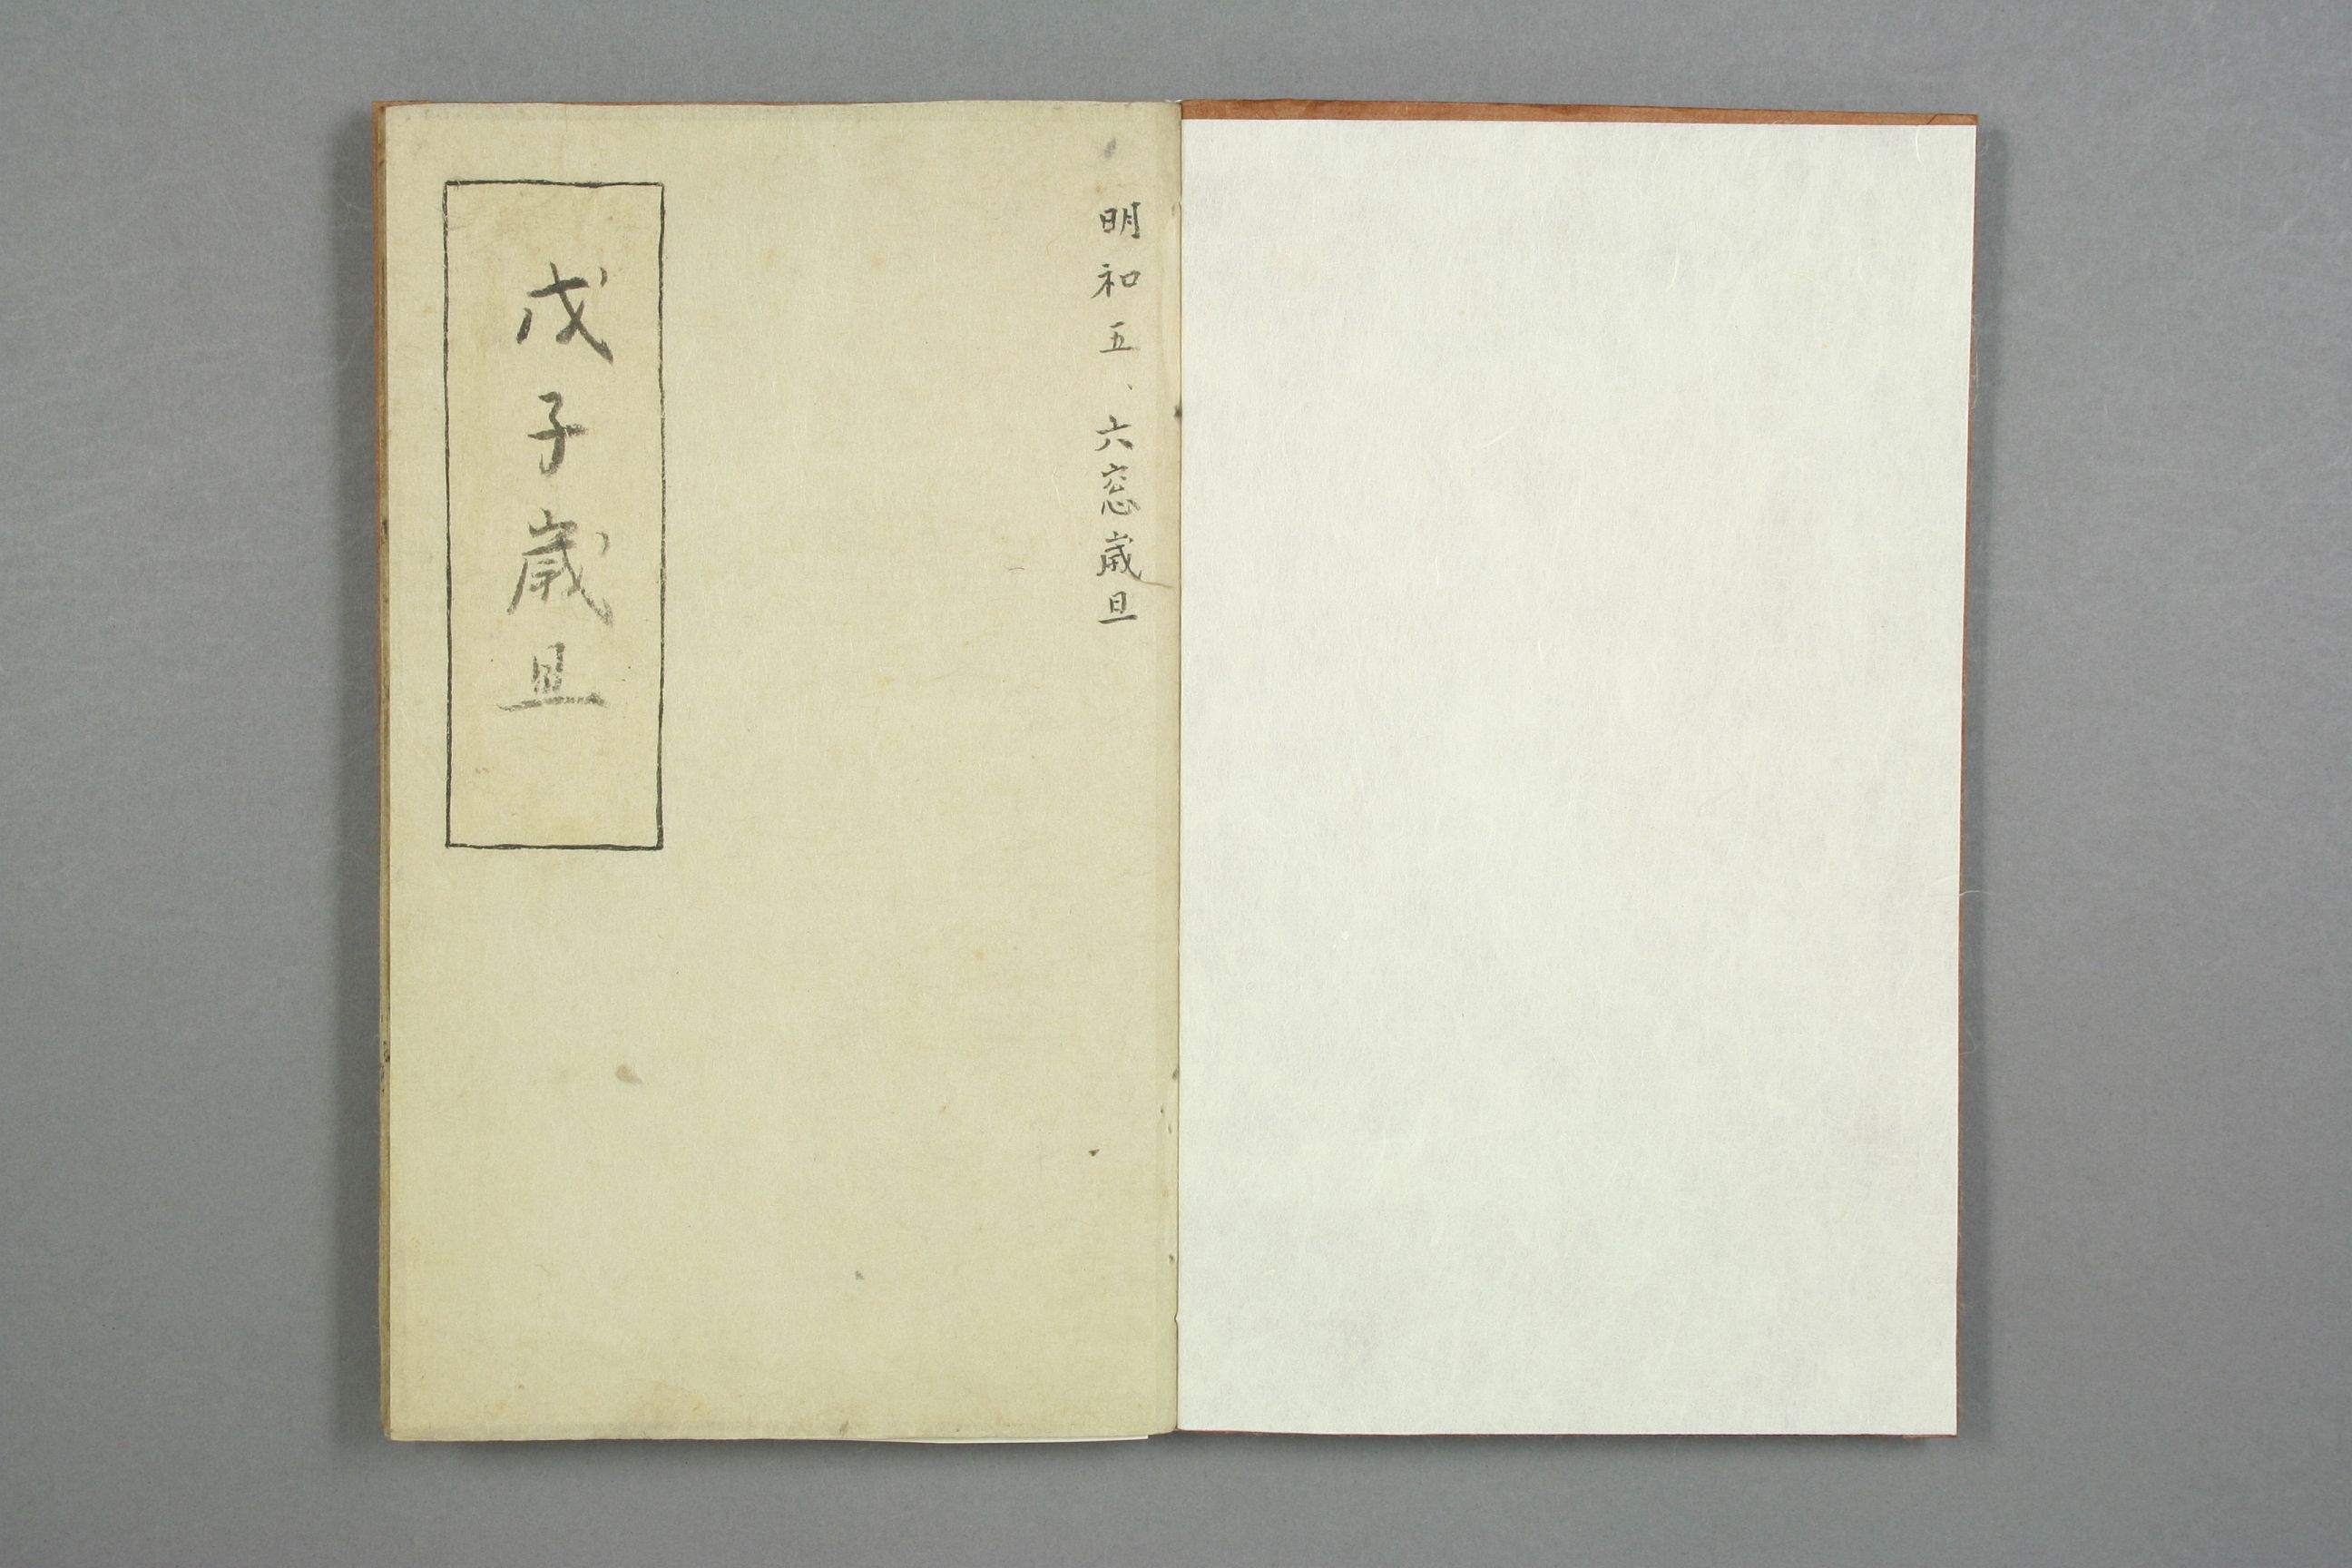 明和五、六窓歳旦
戊子歳旦